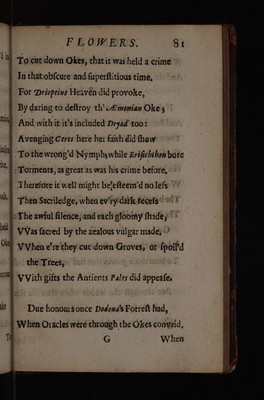 FLOWERS. 81
To cut down Okes, that it was held a crime
In that obscure and superstitious time.
For Driopeius Heaven did provoke,
By daring to destroy th' Æmonian Oke;
And with it it's included Dryad too:
Avenging Ceres here her faith did show
To the wrong'd Nymph; while Erisichthon bore
Torments, as great as was his crime before.
Therefore it well might be esteem'd no less
Then Sacriledge, when ev'ry dark recess
The awful silence, and each gloomy shade,
VVas sacred by the zealous vulgar made,
VVhen e're they cut down Groves, or spoil'd
the Trees,
VVith gifts the Antients Pales did appease.
Due honours once Dodona's Forrest had,
When Oracles were through the Okes convaid,
G When